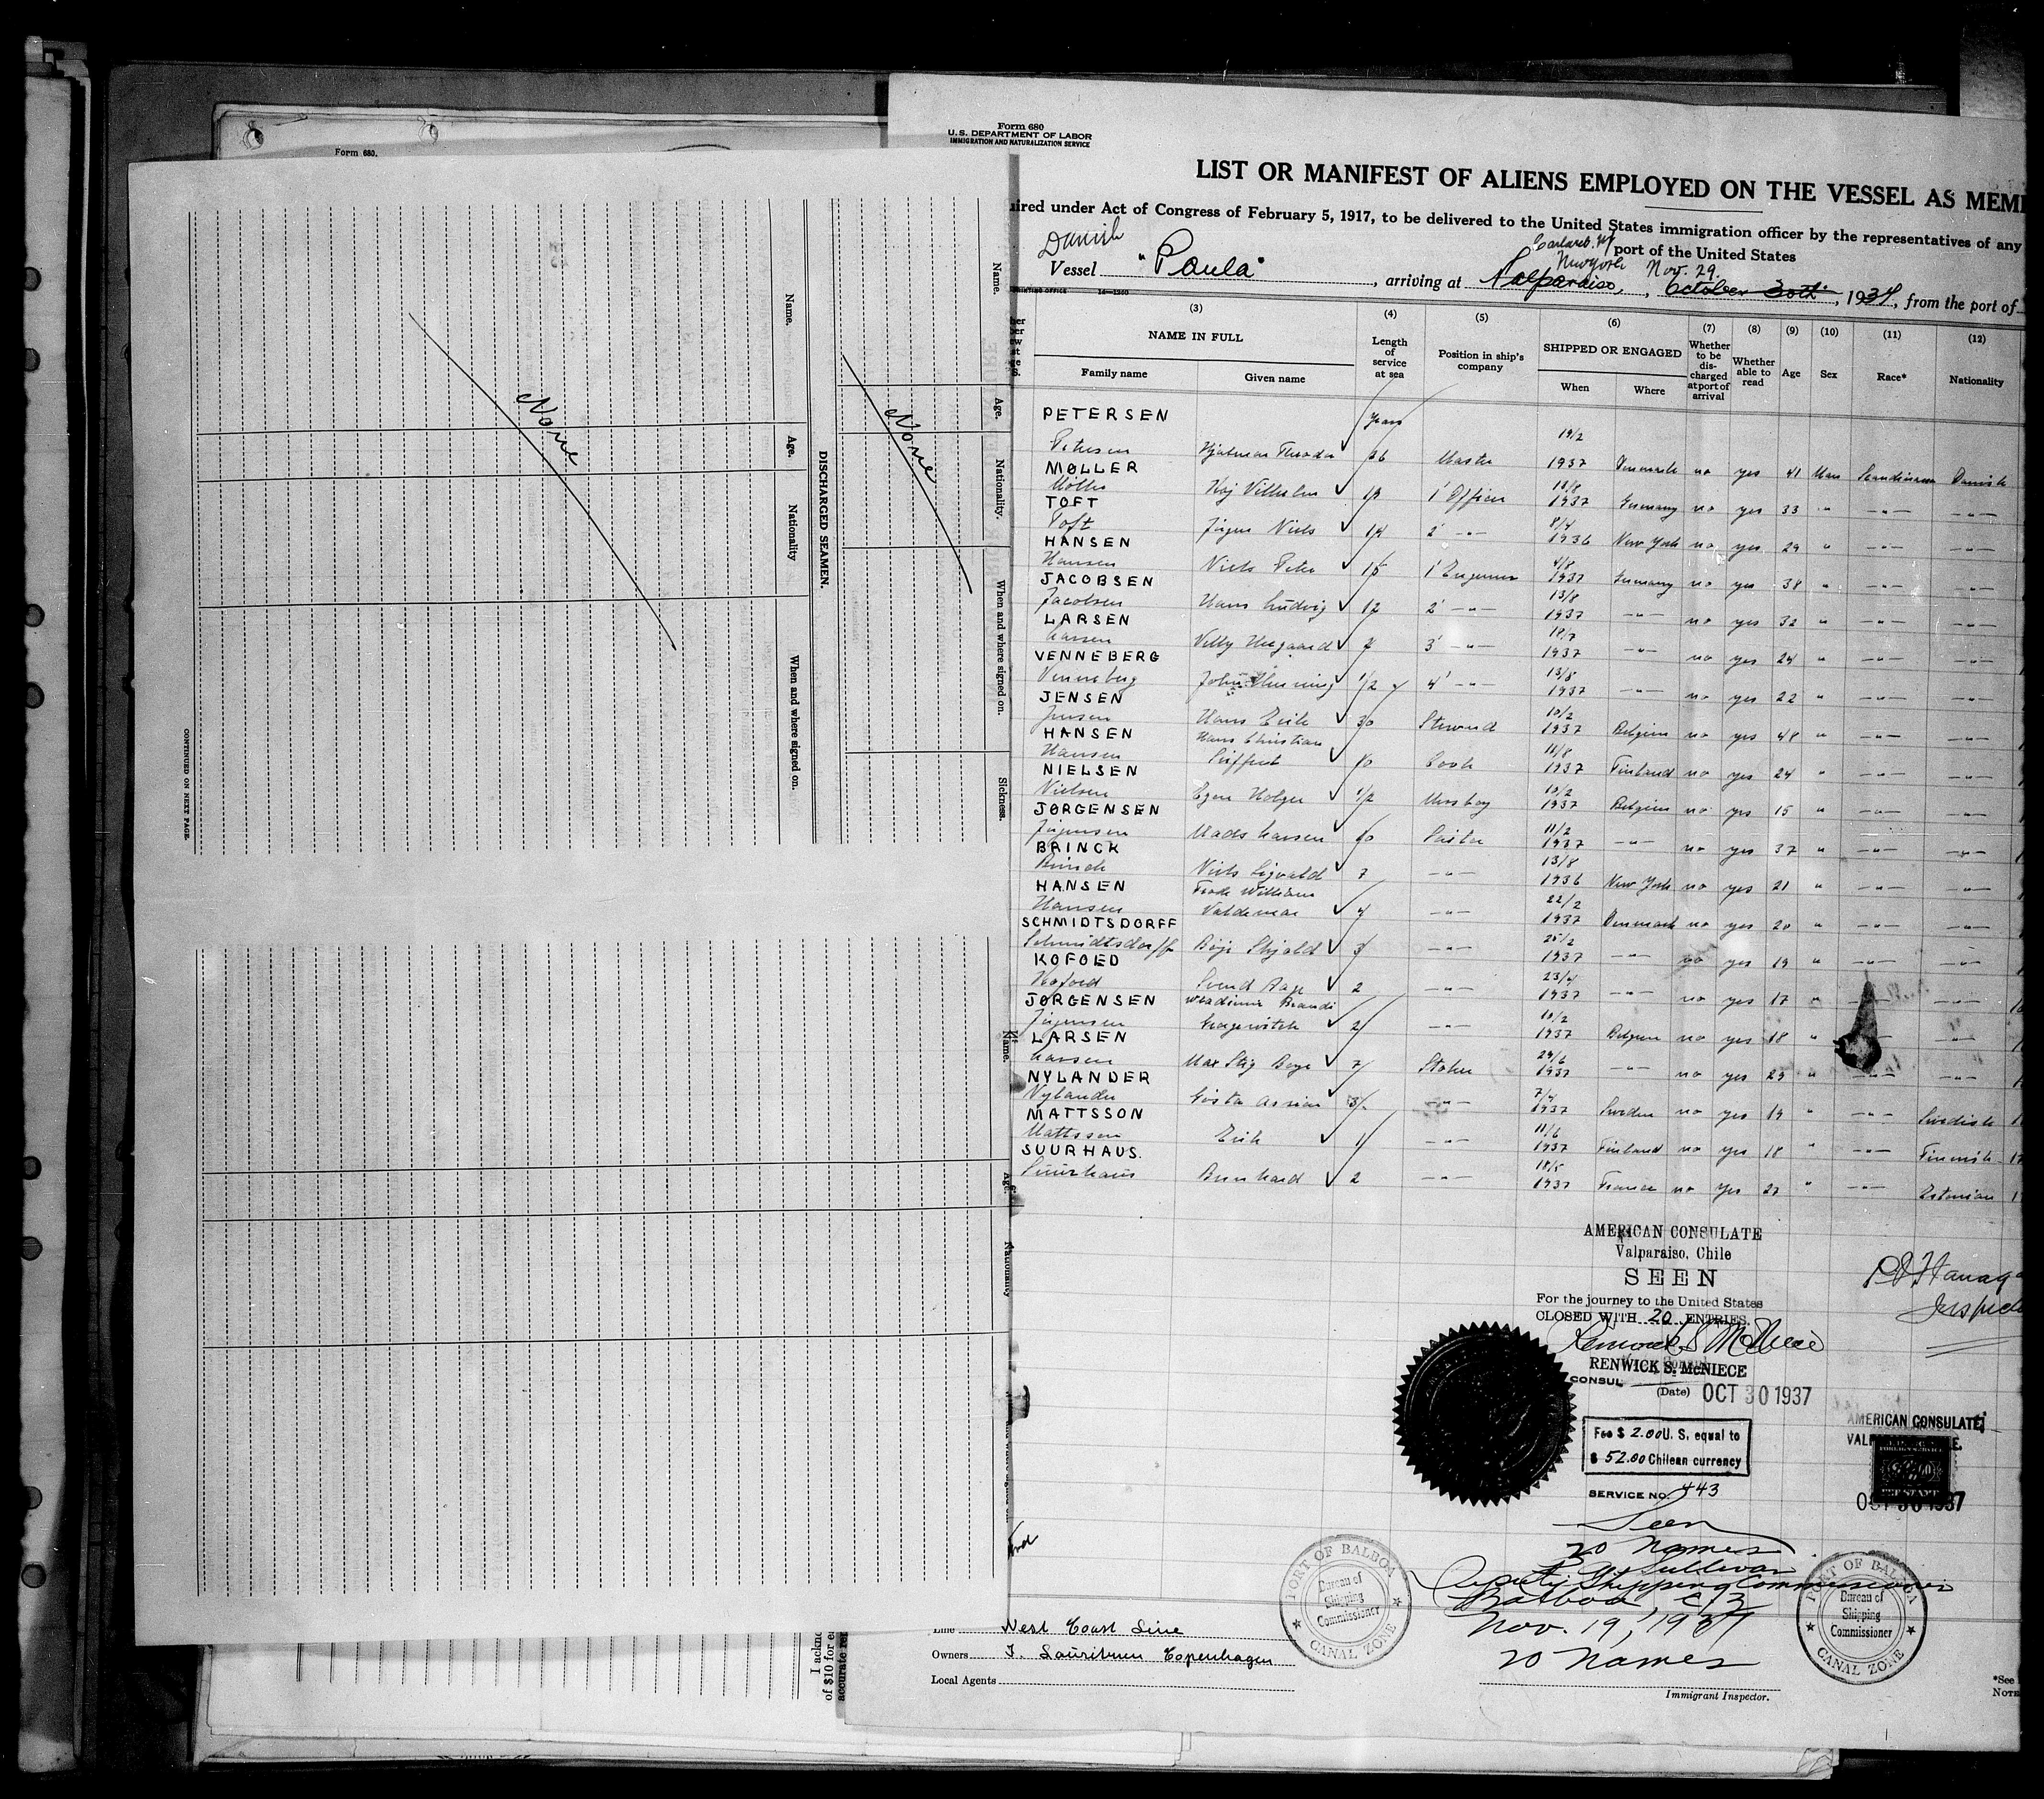 Form 680.
Name.
Age.
Nationality
When and where signed on.
None
DISCHARGED SEAMEN.
Name.
Age.
Nationality.
When and where signed on.
Sickness.
None
CONTINUED ON NEXT PAGE.
Name.
Age.
Nationality
Form 680
U.S. DEPARTMENT OF LABOR
IMMIGRATION AND NATURALIZATION SERVICE
LIST OR MANIFEST OF ALIENS EMPLOYED ON THE VESSEL AS MEM
uired under Act of Congress of February 5, 1917, to be delivered to the United States immigration officer by the representatives of any
port of the United States
Danish
New York Nov. 29
Vessel "Paula", arriving at Valparaiso, October 30th, 1937, from the port of
(3) (4) (5) (6) (7) (8) (9) (10) (11) (12)
NAME IN FULL
Family name Given name
Length of service at sea
Position in ship's company
SHIPPED OR ENGAGED
When Where
Whether to be discharged at port of arrival
Whether able to read
Age Sex Race* Nationality
PETERSEN years 19/2
Petersen Hjalmar Theodor 26 Master 1937 Denmark no yes 41 Man Scandinavian Danish
MØLLER
Møller Kaj Vilhelm 1' Officer 1937 Germany no yes 33 " -"- -"-
TOFT
Toft Jørgen Niels 14 2' -"- 1936 New York no yes 29 " -"- -"-
HANSEN 4/8
Hansen Niels Peter 15 1' Engineer 1937 Germany no yes 38 " -"- -"-
JACOBSEN 13/8
Jacobsen Hans Ludvig 12 2' -"- 1937 -"- no yes 32 " -"- -"-
LARSEN 18/7
Larsen Villy 3' -"- 1937 -"- no yes 24 " -"- -"-
VENNEBERG 13/8
Venneberg John Henning 1/2 4' -"- 1937 -"- no yes 22 " -"- -"-
JENSEN 10/2
Jensen Hans Erik 30 Steward 1937 Belgium no yes 48 " -"- -"-
HANSEN Hans Christian 11/8
Hansen 10 Cook 1937 Finland no yes 24 " -"- -"-
NIELSEN 10/2
Nielsen Egon Holger 1/2 Messboy 1937 Belgium no yes 15 " -"- -"-
JØRGENSEN 11/2
Jørgensen Mads Larsen Sailor 1937 -"- no yes 37 " -"- -"-
BRINCK 13/8
Brinck Niels Sigvald 7 -"- 1936 New York no yes 21 " -"- -"-
HANSEN 22/2
Hansen Valdemar 4 -"- 1937 Denmark no yes 20 " -"- -"-
SCHMIDTSDORFF 25/2
Schmidtsdorff Skjold 3 -"- 1937 -"- no yes 19 " -"- -"-
KOFOED 23/4
Kofoed Svend Aage 2 -"- 1937 -"- no yes 17 " -"- -"-
JØRGENSEN Wladimir 10/2
Jørgensen 2 -"- 1937 Belgium no yes 18 " -"- -"-
LARSEN 24/6
Larsen Max Stig 7 Stoker 1937 -"- no yes 29 " -"- -"-
NYLANDER 7/4
Nylander Gösta 3 -"- 1937 Sweden no yes 19 " -"- Swedish
MATTSSON 11/6
Mattsson Erik 1 -"- 1937 Finland no yes 18 " -"- Finnish
SUURHAUS. 18/5
Suurhaus Bernhard 2 -"- 1937 France no yes 27 " -"- Estonian
AMERICAN CONSULATE
Valparaiso, Chile
SEEN
For the journey to the United States
CLOSED WITH 20 ENTRIES.
Renwick S McNiece
RENWICK S. McNIECE
CONSUL
(Date) OCT 30 1937
Fee $ 2.00 U. S. equal to
$ 52.00 Chilean currency
SERVICE NO. 443
AMERICAN CONSULATE,
OCT 30 1937
Seen
20 names
Sullivan
Deputy Shipping Commissioner
Balboa, C Z
Nov. 19, 1937
20 names
PORT OF BALBOA
Bureau of
Shipping
Commissioner
CANAL ZONE
PORT OF BALBOA
Bureau of
Shipping
Commissioner
CANAL ZONE
Line West Coast Line
Owners J. Lauritzen Copenhagen
Local Agents
Immigrant Inspector.
*See
NOTE